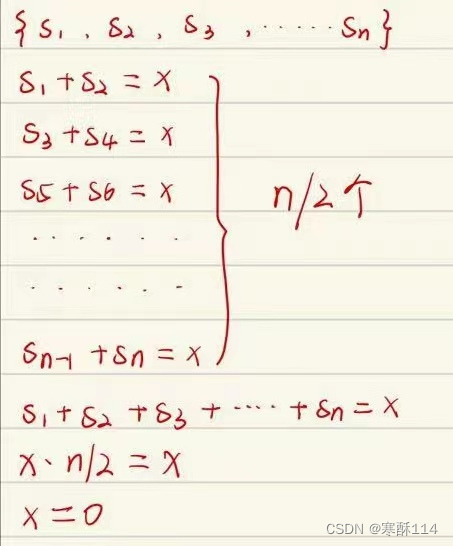 {s₁, s₂, s₃, ······ sₙ}
s₁ + s₂ = x
s₃ + s₄ = x
s₅ + s₆ = x
n/2个
· · · · · ·
· · · · · ·
sₙ₋₁ + sₙ = x
s₁ + s₂ + s₃ + ···· + sₙ = x
x · n/2 = x
x = 0
CSDN @寒酥114